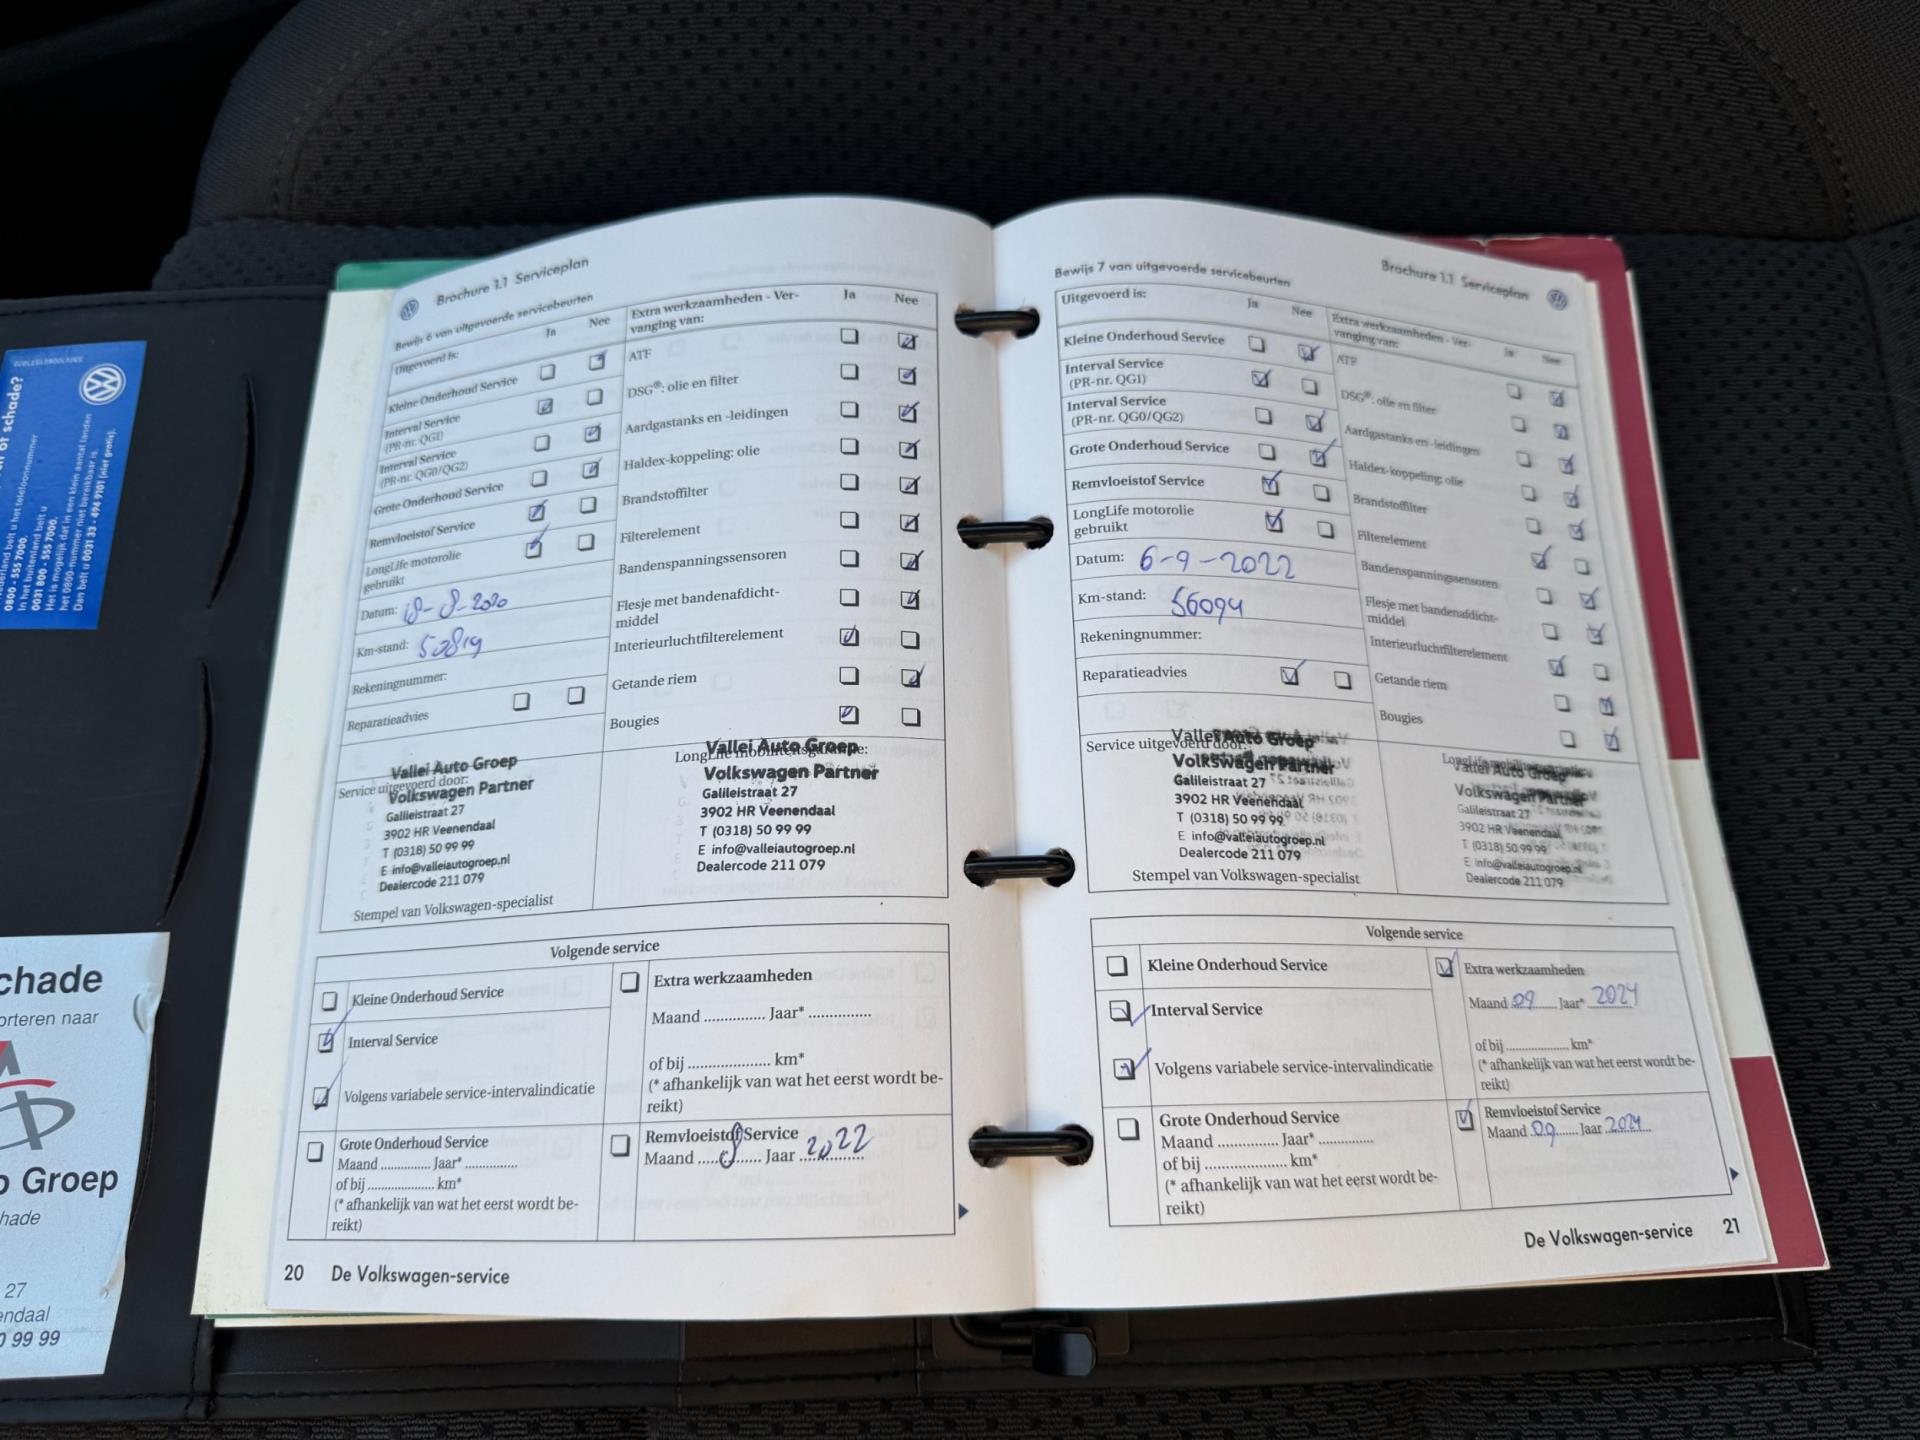 Brochure 1.1 Serviceplan
Bewijs 6 van uitgevoerde servicebeurten
Uitgevoerd is:
Ja
Nee
Kleine Onderhoud Service
Interval Service
(PR-nr. QG1)
Interval Service
(PR-nr. QG0/QG2)
Grote Onderhoud Service
Remvloeistof Service
LongLife motorolie
gebruikt
Datum: 18-8-2020
Km-stand: 50819
Rekeningnummer:
Reparatieadvies
Extra werkzaamheden - Ver-
vanging van:
Ja
Nee
ATF
DSG®: olie en filter
Aardgastanks en -leidingen
Haldex-koppeling: olie
Brandstoffilter
Filterelement
Bandenspanningssensoren
Flesje met bandenafdicht-
middel
Interieurluchtfilterelement
Getande riem
Bougies
Service uitgevoerd door:
Vallei Auto Groep
Volkswagen Partner
Galileistraat 27
3902 HR Veenendaal
T (0318) 50 99 99
E info@valleiautogroep.nl
Dealercode 211 079
Stempel van Volkswagen-specialist
LongLife mobiliteitsgarantie:
Vallei Auto Groep
Volkswagen Partner
Galileistraat 27
3902 HR Veenendaal
T (0318) 50 99 99
E info@valleiautogroep.nl
Dealercode 211 079
Volgende service
Kleine Onderhoud Service
Interval Service
Volgens variabele service-intervalindicatie
Grote Onderhoud Service
Maand .............. Jaar* ..............
of bij .................... km*
(* afhankelijk van wat het eerst wordt be-
reikt)
Extra werkzaamheden
Maand .............. Jaar* ..............
of bij .................... km*
(* afhankelijk van wat het eerst wordt be-
reikt)
Remvloeistof Service
Maand 8 Jaar 2022
20 De Volkswagen-service
Brochure 1.1 Serviceplan
Bewijs 7 van uitgevoerde servicebeurten
Uitgevoerd is:
Ja
Nee
Kleine Onderhoud Service
Interval Service
(PR-nr. QG1)
Interval Service
(PR-nr. QG0/QG2)
Grote Onderhoud Service
Remvloeistof Service
LongLife motorolie
gebruikt
Datum: 6-9-2022
Km-stand: 56094
Rekeningnummer:
Reparatieadvies
Extra werkzaamheden - Ver-
vanging van:
Ja
Nee
ATF
DSG®: olie en filter
Aardgastanks en -leidingen
Haldex-koppeling: olie
Brandstoffilter
Filterelement
Bandenspanningssensoren
Flesje met bandenafdicht-
middel
Interieurluchtfilterelement
Getande riem
Bougies
Service uitgevoerd door:
Vallei Auto Groep
Volkswagen Partner
Galileistraat 27
3902 HR Veenendaal
T (0318) 50 99 99
E info@valleiautogroep.nl
Dealercode 211 079
Stempel van Volkswagen-specialist
LongLife mobiliteitsgarantie:
Vallei Auto Groep
Volkswagen Partner
Galileistraat 27
3902 HR Veenendaal
T (0318) 50 99 99
E info@valleiautogroep.nl
Dealercode 211 079
Volgende service
Kleine Onderhoud Service
Interval Service
Volgens variabele service-intervalindicatie
Grote Onderhoud Service
Maand .............. Jaar* ..............
of bij .................... km*
(* afhankelijk van wat het eerst wordt be-
reikt)
Extra werkzaamheden
Maand 09 Jaar* 2024
of bij .................... km*
(* afhankelijk van wat het eerst wordt be-
reikt)
Remvloeistof Service
Maand 09 Jaar 2024
De Volkswagen-service 21
of schade?
Nederland belt u het telefoonnummer
0800 - 555 7000.
In het buitenland belt u
0031 800 - 555 7000.
Het is mogelijk dat in een klein aantal landen
het 0800-nummer niet bereikbaar is.
Dan belt u 0031 33 - 494 9101 (niet gratis).
chade
orteren naar
o Groep
hade
27
endaal
0 99 99